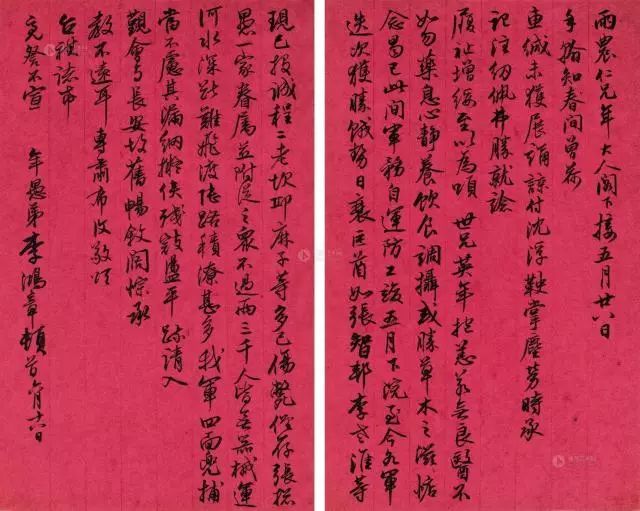 雨農仁兄年大人閣下接五月廿八日
手 知春間曾荷
惠緘未獲展誦諒付沈浮鞅掌塵勞時承
記注紉佩弗勝就諗
履祉增綏至以為頌 世兄英年抱恙若無良醫不
如勿藥息心靜養飲食調攝或勝草木之滋惦
念曷已此間軍務自運防工竣五月下浣至今各軍
迭次獲勝賊勢日衰巨酋如張智邦李老淮等
現已投誠程二老坎邱麻子等多已傷斃僅存張總
愚一家眷屬並附從之眾不過兩三千人皆無器械運
河水深斷難飛渡陸路積潦甚多我軍四面兜捕
當不慮其漏網擬俟殘寇盪平 疏請入
覲會與長安故舊暢敘闊悰承
教不遠耳 專肅布復敬頌
台祺諸希
亮詧不宣
年愚弟李鴻章頓首 月十六日